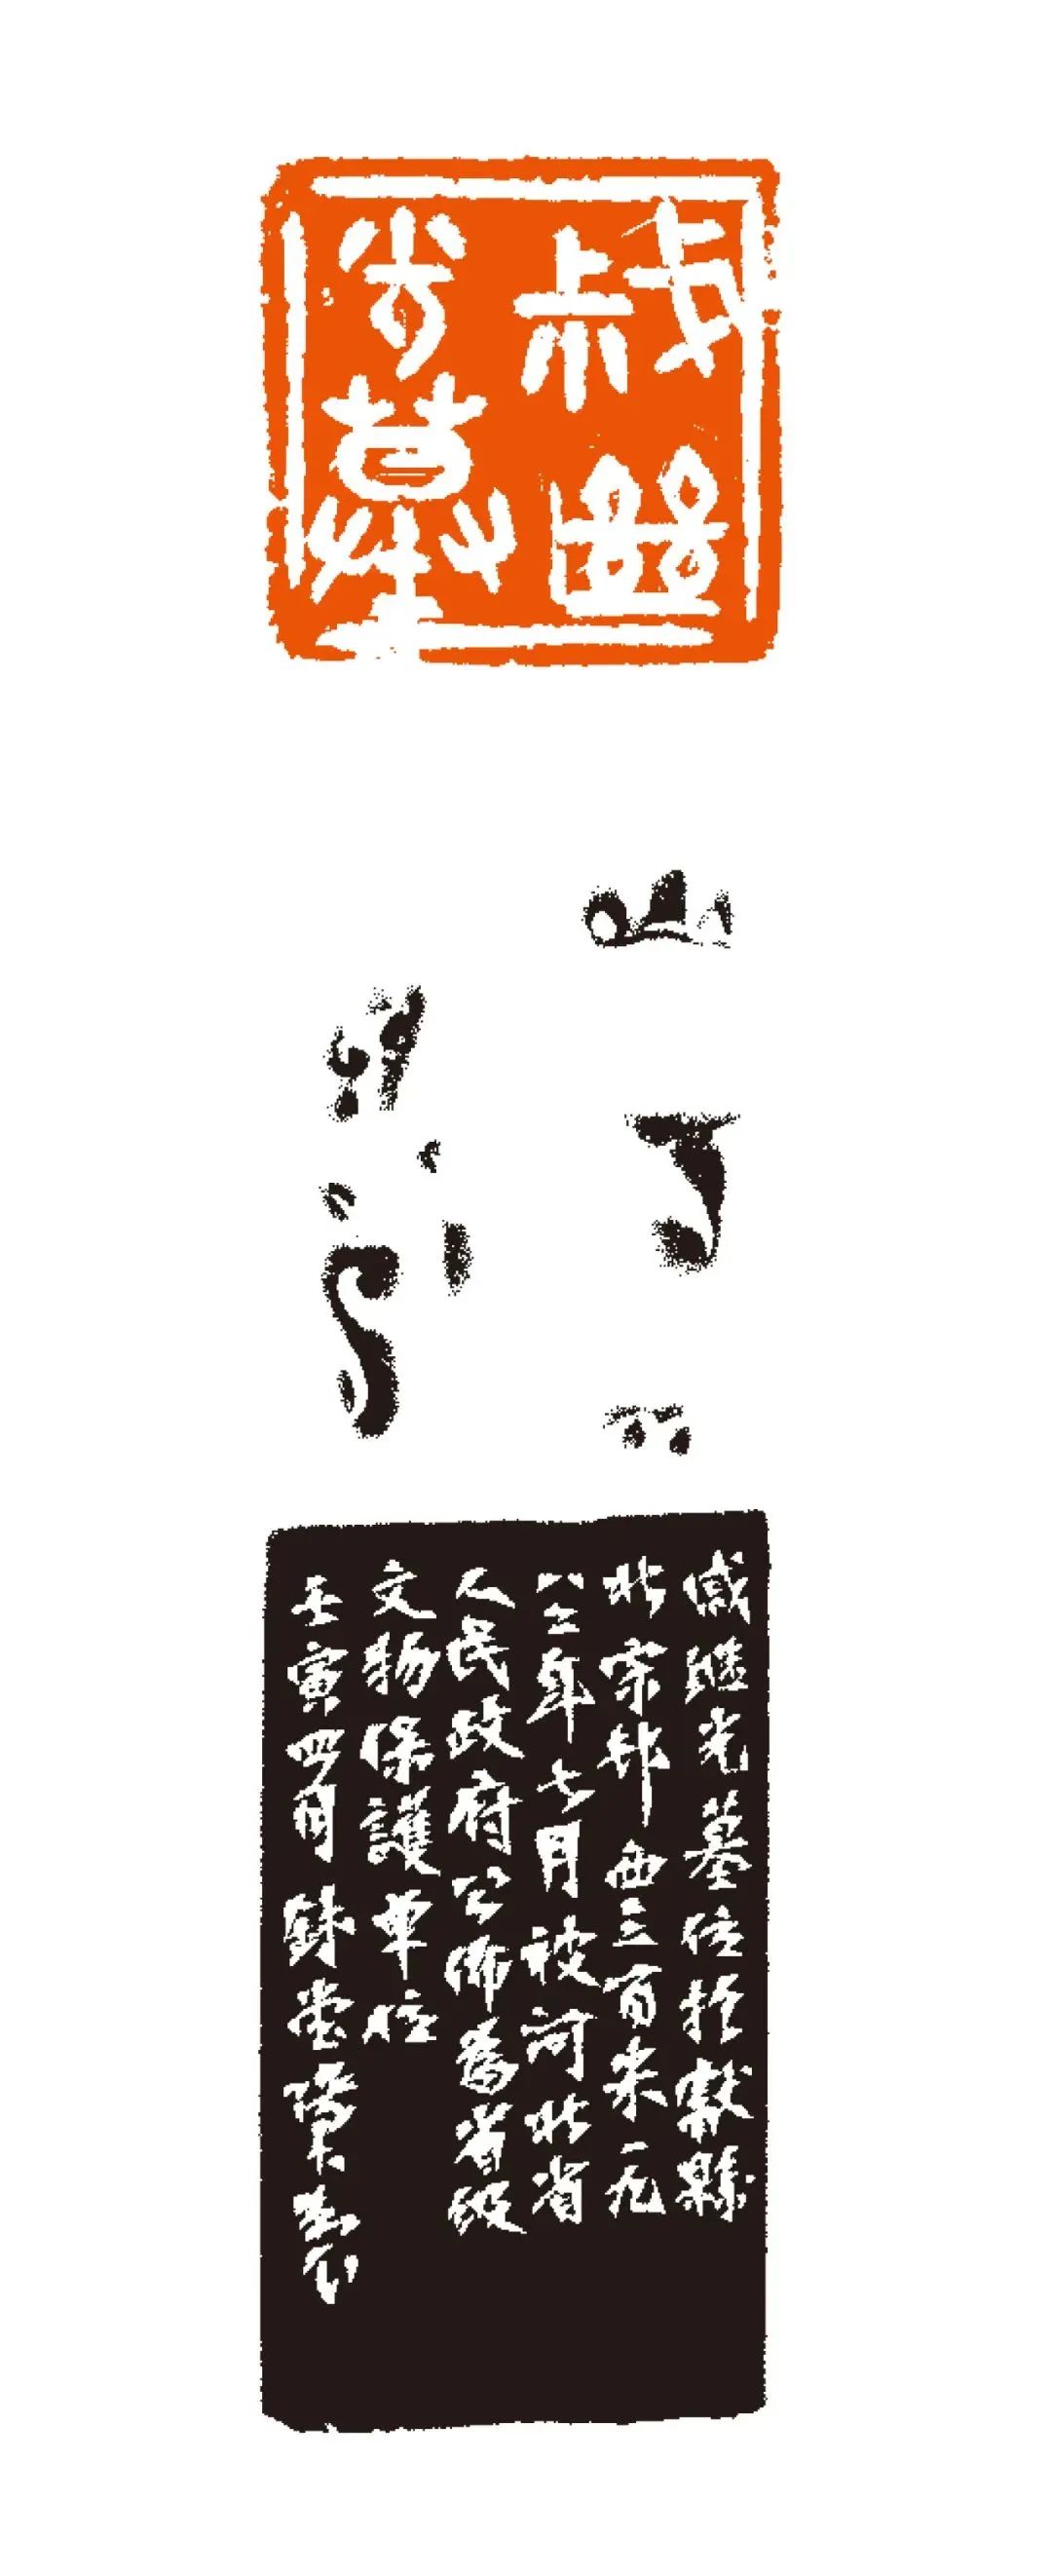 戚繼
光墓
戚継光墓位於獻縣
北宗邨西三百米一九
八二年七月被河北省
人民政府公佈為省級
文物保護單位
壬寅四月